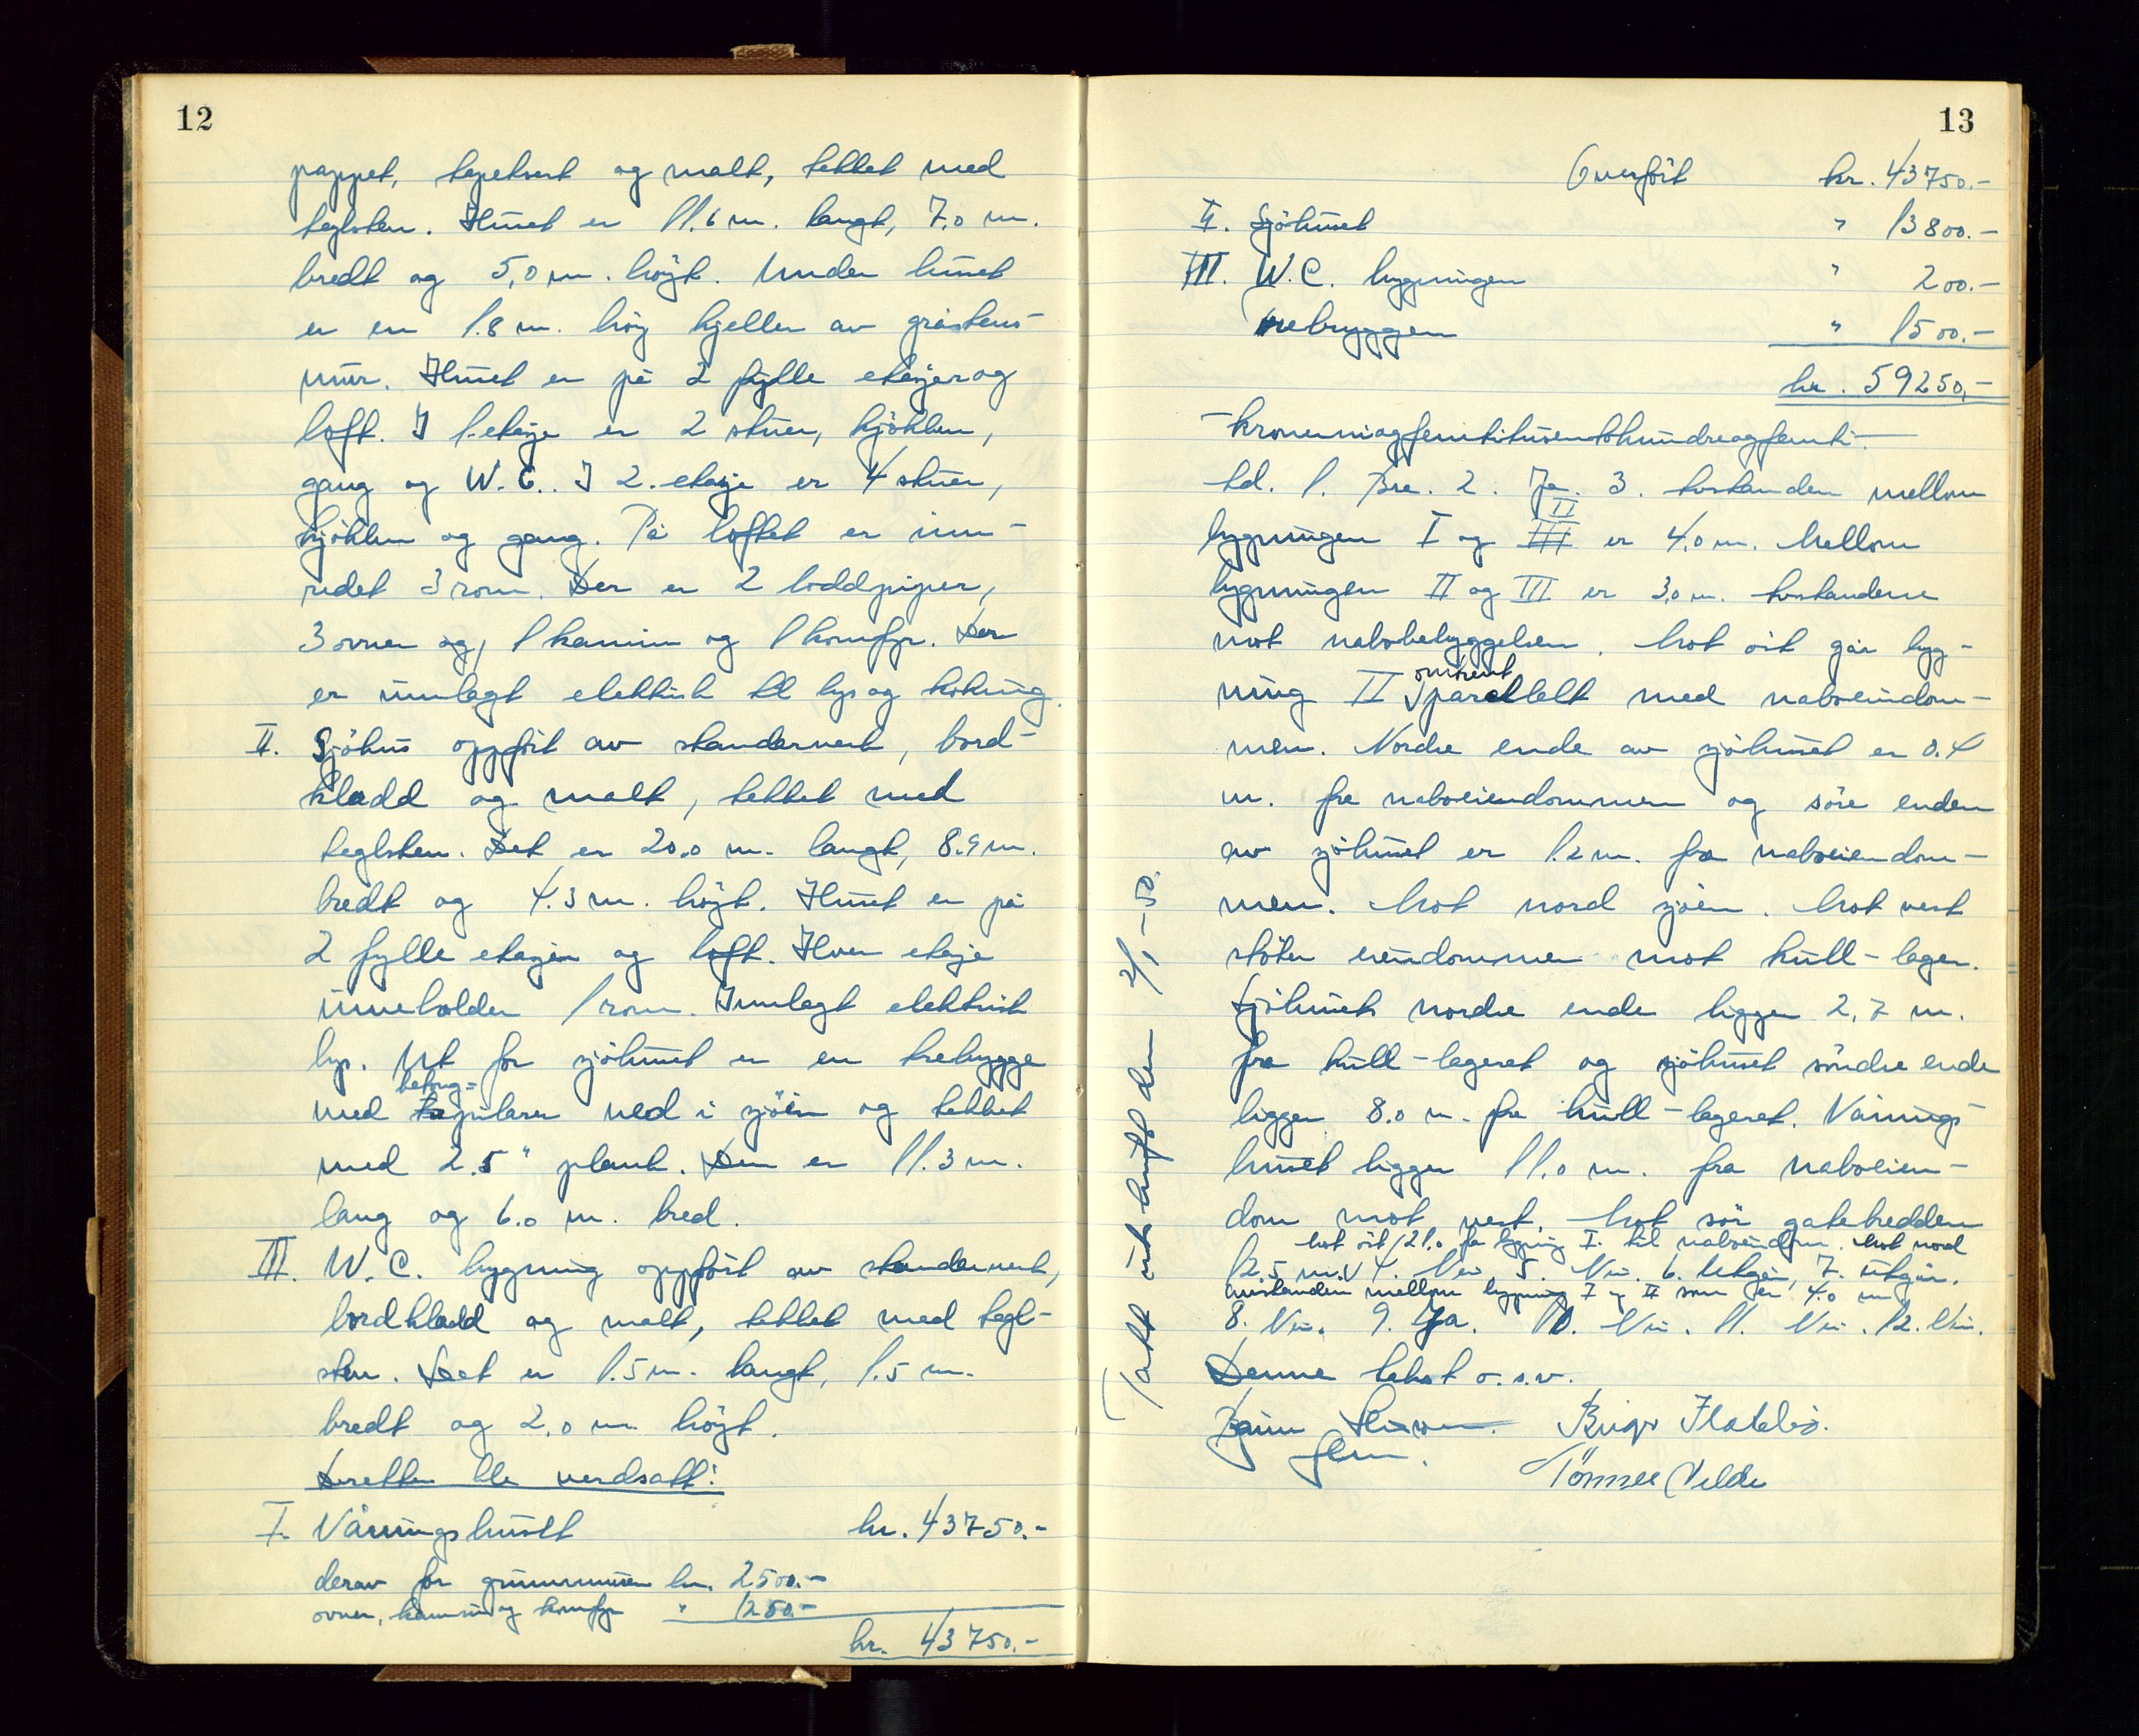 12
pappet, tapetsert og malt, tekket med
teglsten. Huset er 11.6 m. langt, 7.0 m.
bredt og 5,0 m. høyt. Under huset
er en 1.8 m. høy kjeller av gråstens-
mur. Huset er på 2 fylle etasjer og
loft. I 1. etasje er 2 stuer, kjökken,
gang og W.C.. I 2. etasje er 4 stuer,
kjökken og gang. På loftet er inn-
redet 3 rom. Der er 2 loddpiper,
3 ovner og, 1 kamin og 1 komfyr. Der
er innlagt elektrisk til lys og koking.
II. Sjöhus oppfört av standerverk, bord-
kledd og malt, tekket med
teglsten. Det er 20.0 m. langt, 8.9 m.
bredt og 4.3 m. höyt. Huset er på
2 fylle etasjer og loft. Hver etasje
inneholder 1 rom. Innlagt elektrisk
lys. Ut for sjöhuset er en trebrygge
betong=
med pilarer ned i sjöen og tekket
med 2.5" plank. Den er 11.3 m.
lang og 6.0 m. bred.
III. W.C. bygning oppfört av standerverk,
bordkledd og malt, tekket med tegl-
sten. Det er 1.5 m. langt, 1.5 m.
bredt og 2.0 m höyt.
Deretter ble verdsatt:
I. Våningshuset kr. 43750.-
derav for grunnmuren kr. 2500.-
ovner, kamin og komfyr " 1250.-
kr. 43750.-
13
Overfört kr. 43750.-
II. Sjöhuset " 13800.-
III. W.C. bygningen " 200.-
Trebryggen " 1500.-
kr. 59250,-
-kronerniogfemtitusentohundreogfemti-
td. 1. Bra. 2. Ja. 3. Avstanden mellom
II
bygningen I og III er 4,0 m. Mellom
bygningen II og III er 3,0 m. Avstandene
mot nabobebyggelsen. Mot öst går byg-
omtrent
ning II parallelt med naboeiendom-
men. Nordre ende av sjöhuset er 0.4
m. fra naboeiendommen og söre enden
av sjöhuset er 1.2 m. fra naboeiendom-
men. Mot nord sjöen. Mot vest
stöter eiendommen mot kull-lager.
Sjöhusets nordre ende ligger 2,7 m.
fra kull-lageret og sjöhuset söndre ende
ligger 8.0 m. fra kull-lageret. Vånings-
huset ligger 11.0 m. fra naboeien-
dom mot vest. Mot sör gatebredden
Mot öst 21.0 fra bygning I. til naboeiendom. Mot nord
12.5 m. 4. Nei 5. Nei. 6. Utgår, 7. utgår.
avstanden mellom bygning I og II som er 4.0 m
8. Nei. 9. Ja. 10. Nei. 11. Nei. 12. Nei.
Denne takst o.s.v.
Birger Flateb&oslash;.
Tönnes Velde
Tatt utskrift den 2/1-50.